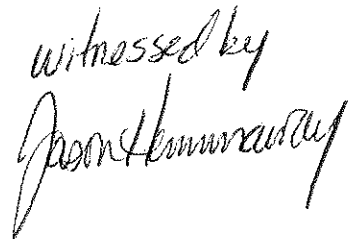 witnessed by
Jason Hemmaway